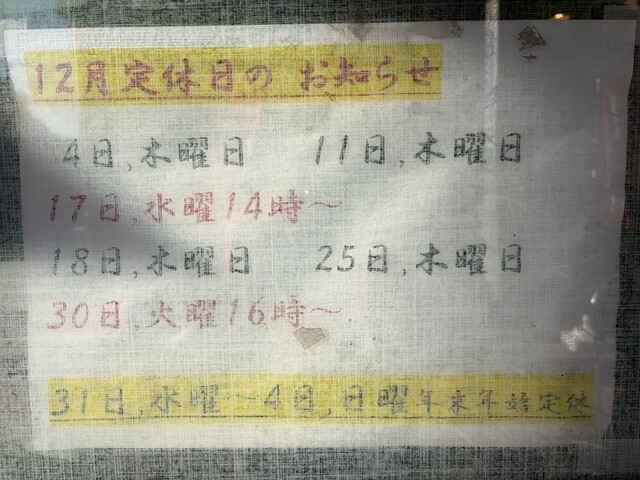 12月定休日の お知らせ
4日,木曜日 11日,木曜日
17日,水曜14時～
18日,木曜日 25日,木曜日
30日,火曜16時～
31日,水曜～4日,日曜年末年始定休